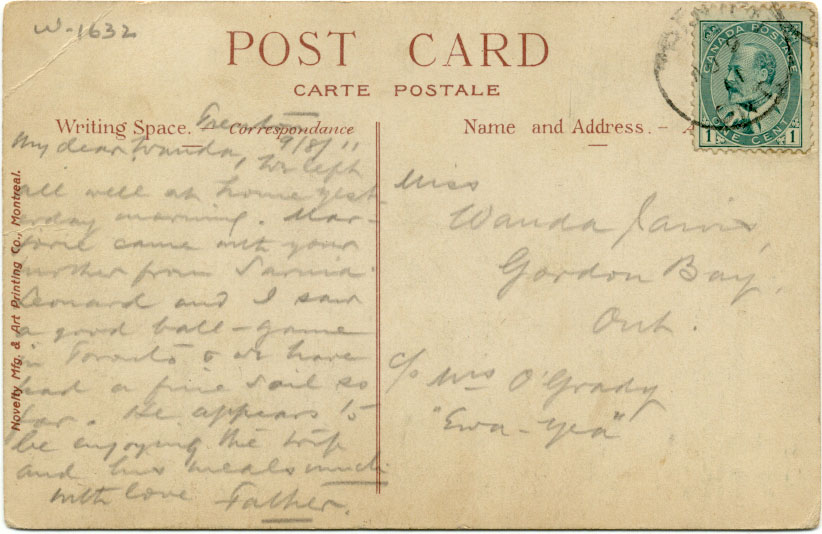 W-1632
POST CARD
CARTE POSTALE
Writing Space. — Correspondance
Name and Address. —
CANADA POSTAGE
1 ONE CENT 1
Trenton
9/8/11
My dear Wanda, We left
all well at home yest-
erday morning. Mar-
jorie came with your
mother from Sarnia.
Leonard and I saw
a good ball-game
in Toronto & we have
had a fine sail so
far. He appears to
be enjoying the trip
and his meals much
with love Father.
Miss
Wanda Jarvis,
Gordon Bay,
Ont.
c/o Mrs O'Grady
"Ewa-yea"
Novelty Mfg. & Art Printing Co., Montreal.